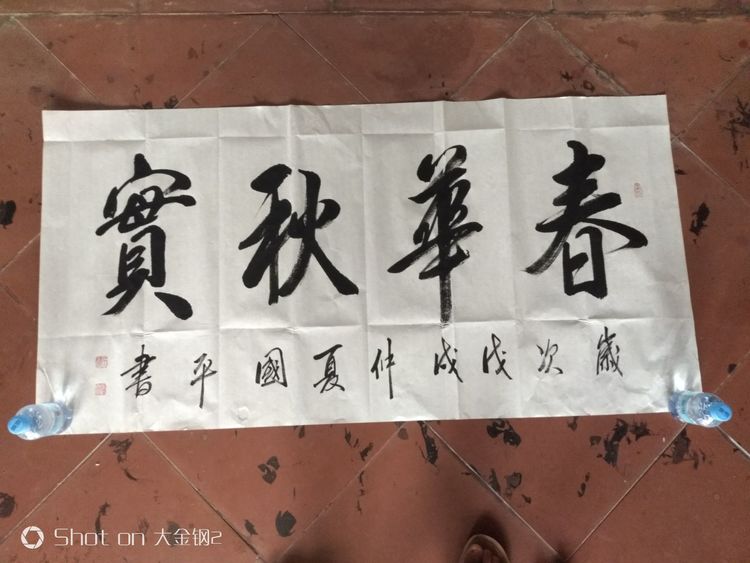 春華秋實
歲次戊戌仲夏國平書
Shot on 大金钢2